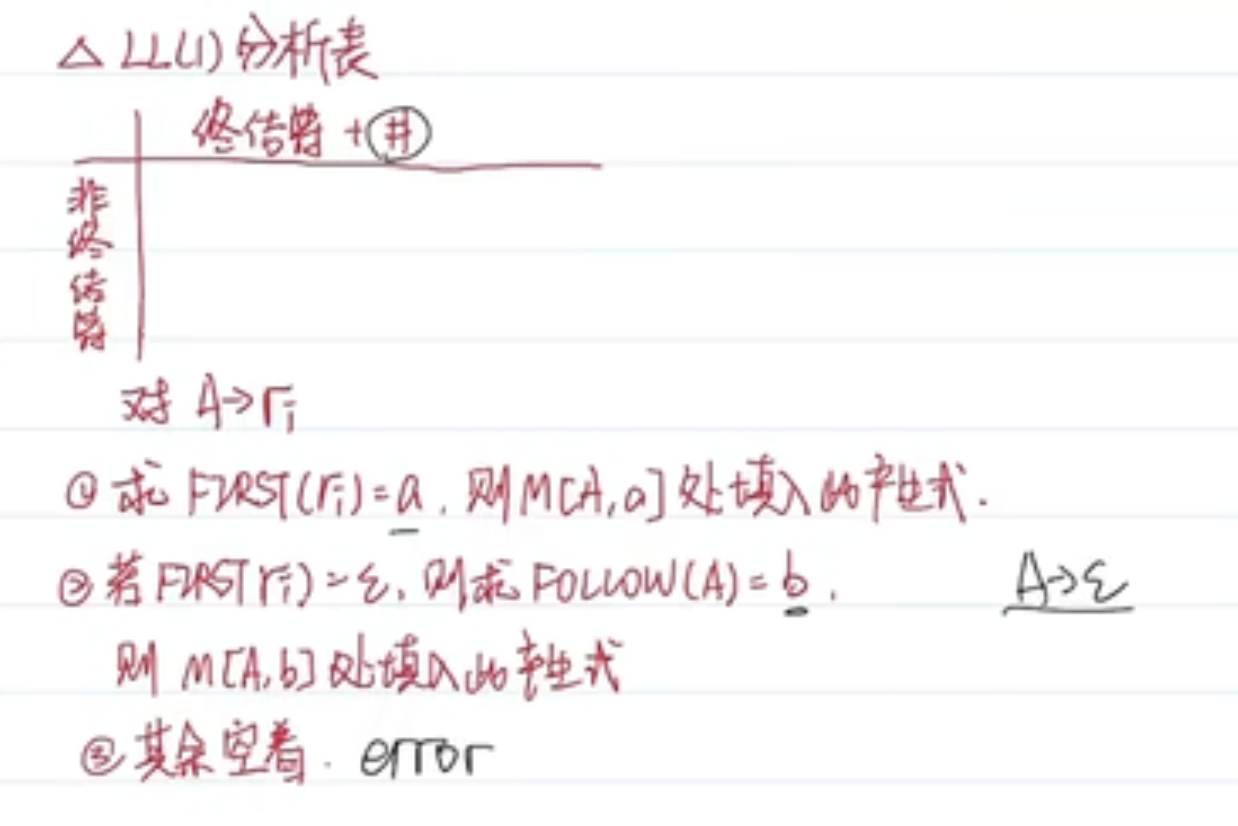 △ LL(1)分析表
终结符 + #
非终结符
对 A→rᵢ
① 求 FIRST(rᵢ)=a. 则M[A,a]处填入此产生式.
② 若FIRST(rᵢ)=ε, 则求FOLLOW(A)=b. A→ε
则 M[A,b]处填入此产生式
③ 其余空着. error